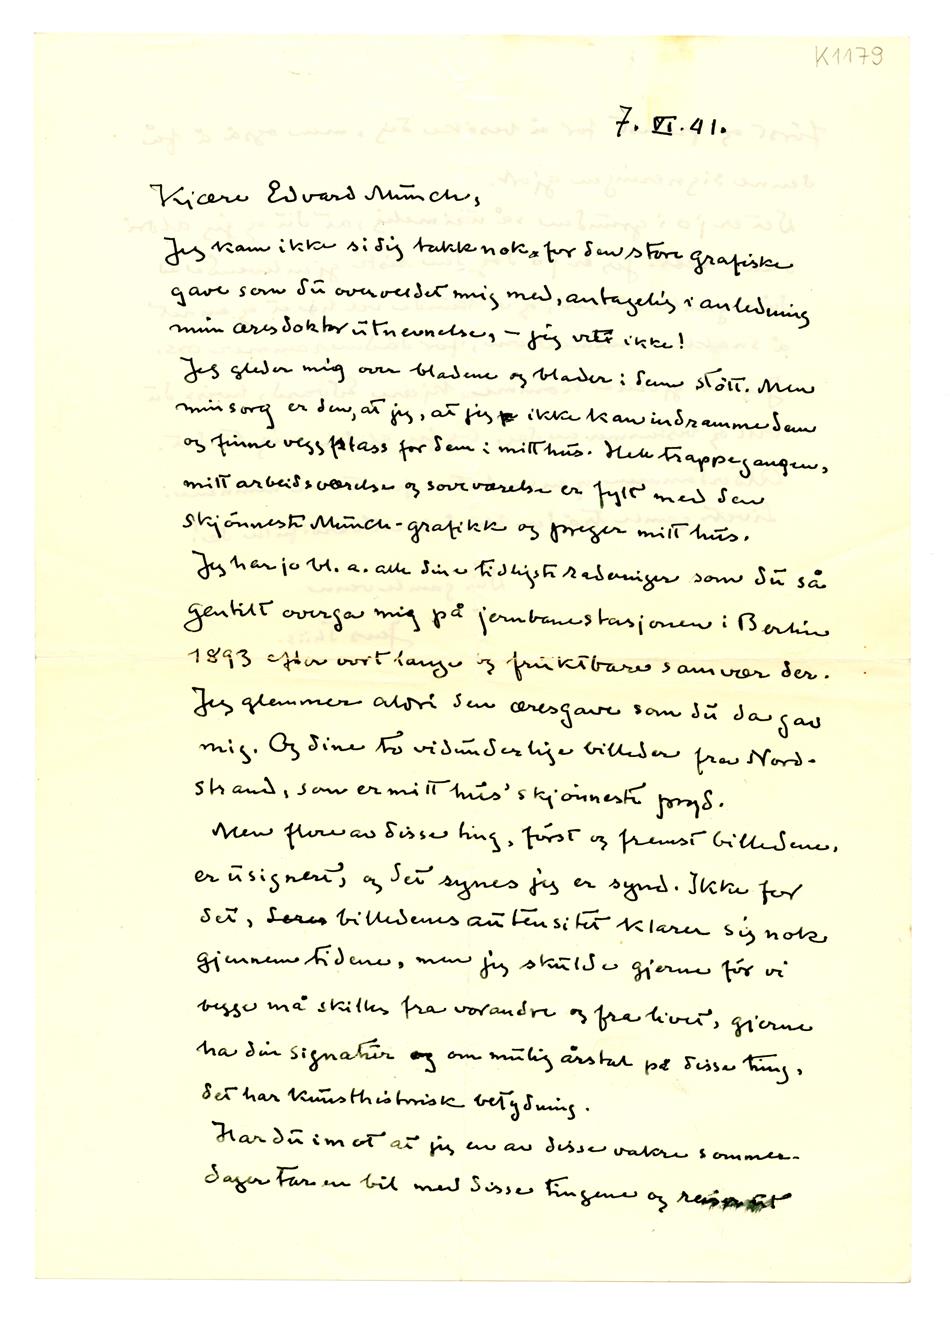 K1179
7. VI. 41.
Kjære Edvard Munch,
Jeg kan ikke si dig takk nok for den store grafiske
gave som du overveldet mig med, antagelig i anledning
min æresdoktorutnevnelse, – jeg vet ikke!
Jeg gleder mig over bladene og blader i dem støtt. Men
min sorg er den, at jeg, at jeg ikke kan indramme dem
og finne veggplass for dem i mitt hus. Hele trappegangen,
mitt arbeidsværelse og soveværelse er fylt med den
skjønneste Munch-grafikk og preger mitt hus.
Jeg har jo bl. a. alle dine tidligste raderinger som du så
gentilt overga mig på jernbanestasjonen i Berlin
1893 efter vort lange og fruktbare samvær der.
Jeg glemmer aldri den æresgave som du da gav
mig. Og dine to vidunderlige billeder fra Nord-
strand, som er mitt hus' skjønneste pryd.
Men flere av disse ting, først og fremst billedene,
er usignert, og det synes jeg er synd. Ikke for
det, billedenes autensitet klarer sig nok
gjennem tidene, men jeg skulde gjerne før vi
begge må skilles fra vorandre og fra livet, gjerne
ha din signatur og om mulig årstal på disse ting,
det har kunsthistorisk betydning.
Har du imot at jeg en av disse vakre sommer-
dager tar en bil med disse tingene og reiser ut